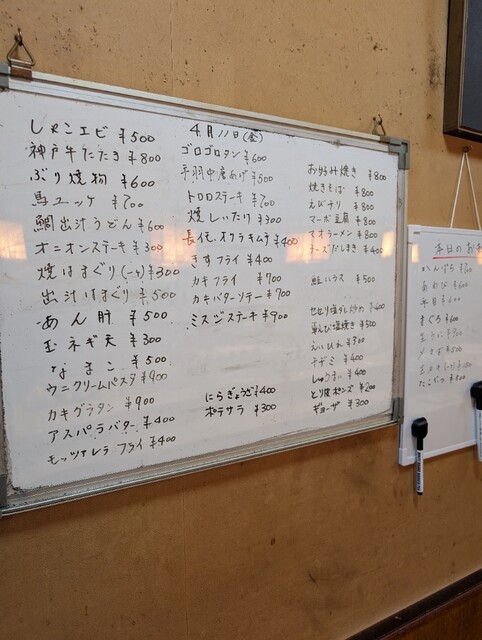 しゃこエビ ¥500
神戸牛たたき ¥800
ぶり焼物 ¥600
馬ユッケ ¥700
鯛出汁うどん ¥600
オニオンステーキ ¥300
焼はまぐり(一ヶ) ¥300
出汁はまぐり ¥500
あん肝 ¥500
玉ネギ天 ¥300
なまこ ¥500
ウニクリームパスタ ¥900
カキグラタン ¥900
アスパラバター ¥400
モッツァレラフライ ¥400
4月11日(金)
ゴロゴロタン ¥600
手羽中唐あげ ¥500
トロロステーキ ¥700
焼しいたけ ¥300
長芋、オクラキムチ ¥400
きすフライ ¥400
カキフライ ¥700
カキバターソテー ¥700
ミスジステーキ ¥900
にらぎょうざ ¥400
ポテサラ ¥300
お好み焼き ¥800
焼きそば ¥800
えびチリ ¥800
マーボ豆腐 ¥800
スオラーメン ¥800
チーズだしまき ¥400
鮭ハラス ¥500
せせり塩だれ炒め ¥400
草えび塩焼き ¥500
えいひれ ¥300
チヂミ ¥400
しゅうまい ¥400
とり皮ポンズ ¥200
ギョーザ ¥300
本日のお
あわび ¥600
平目 ¥600
まぐろ ¥600